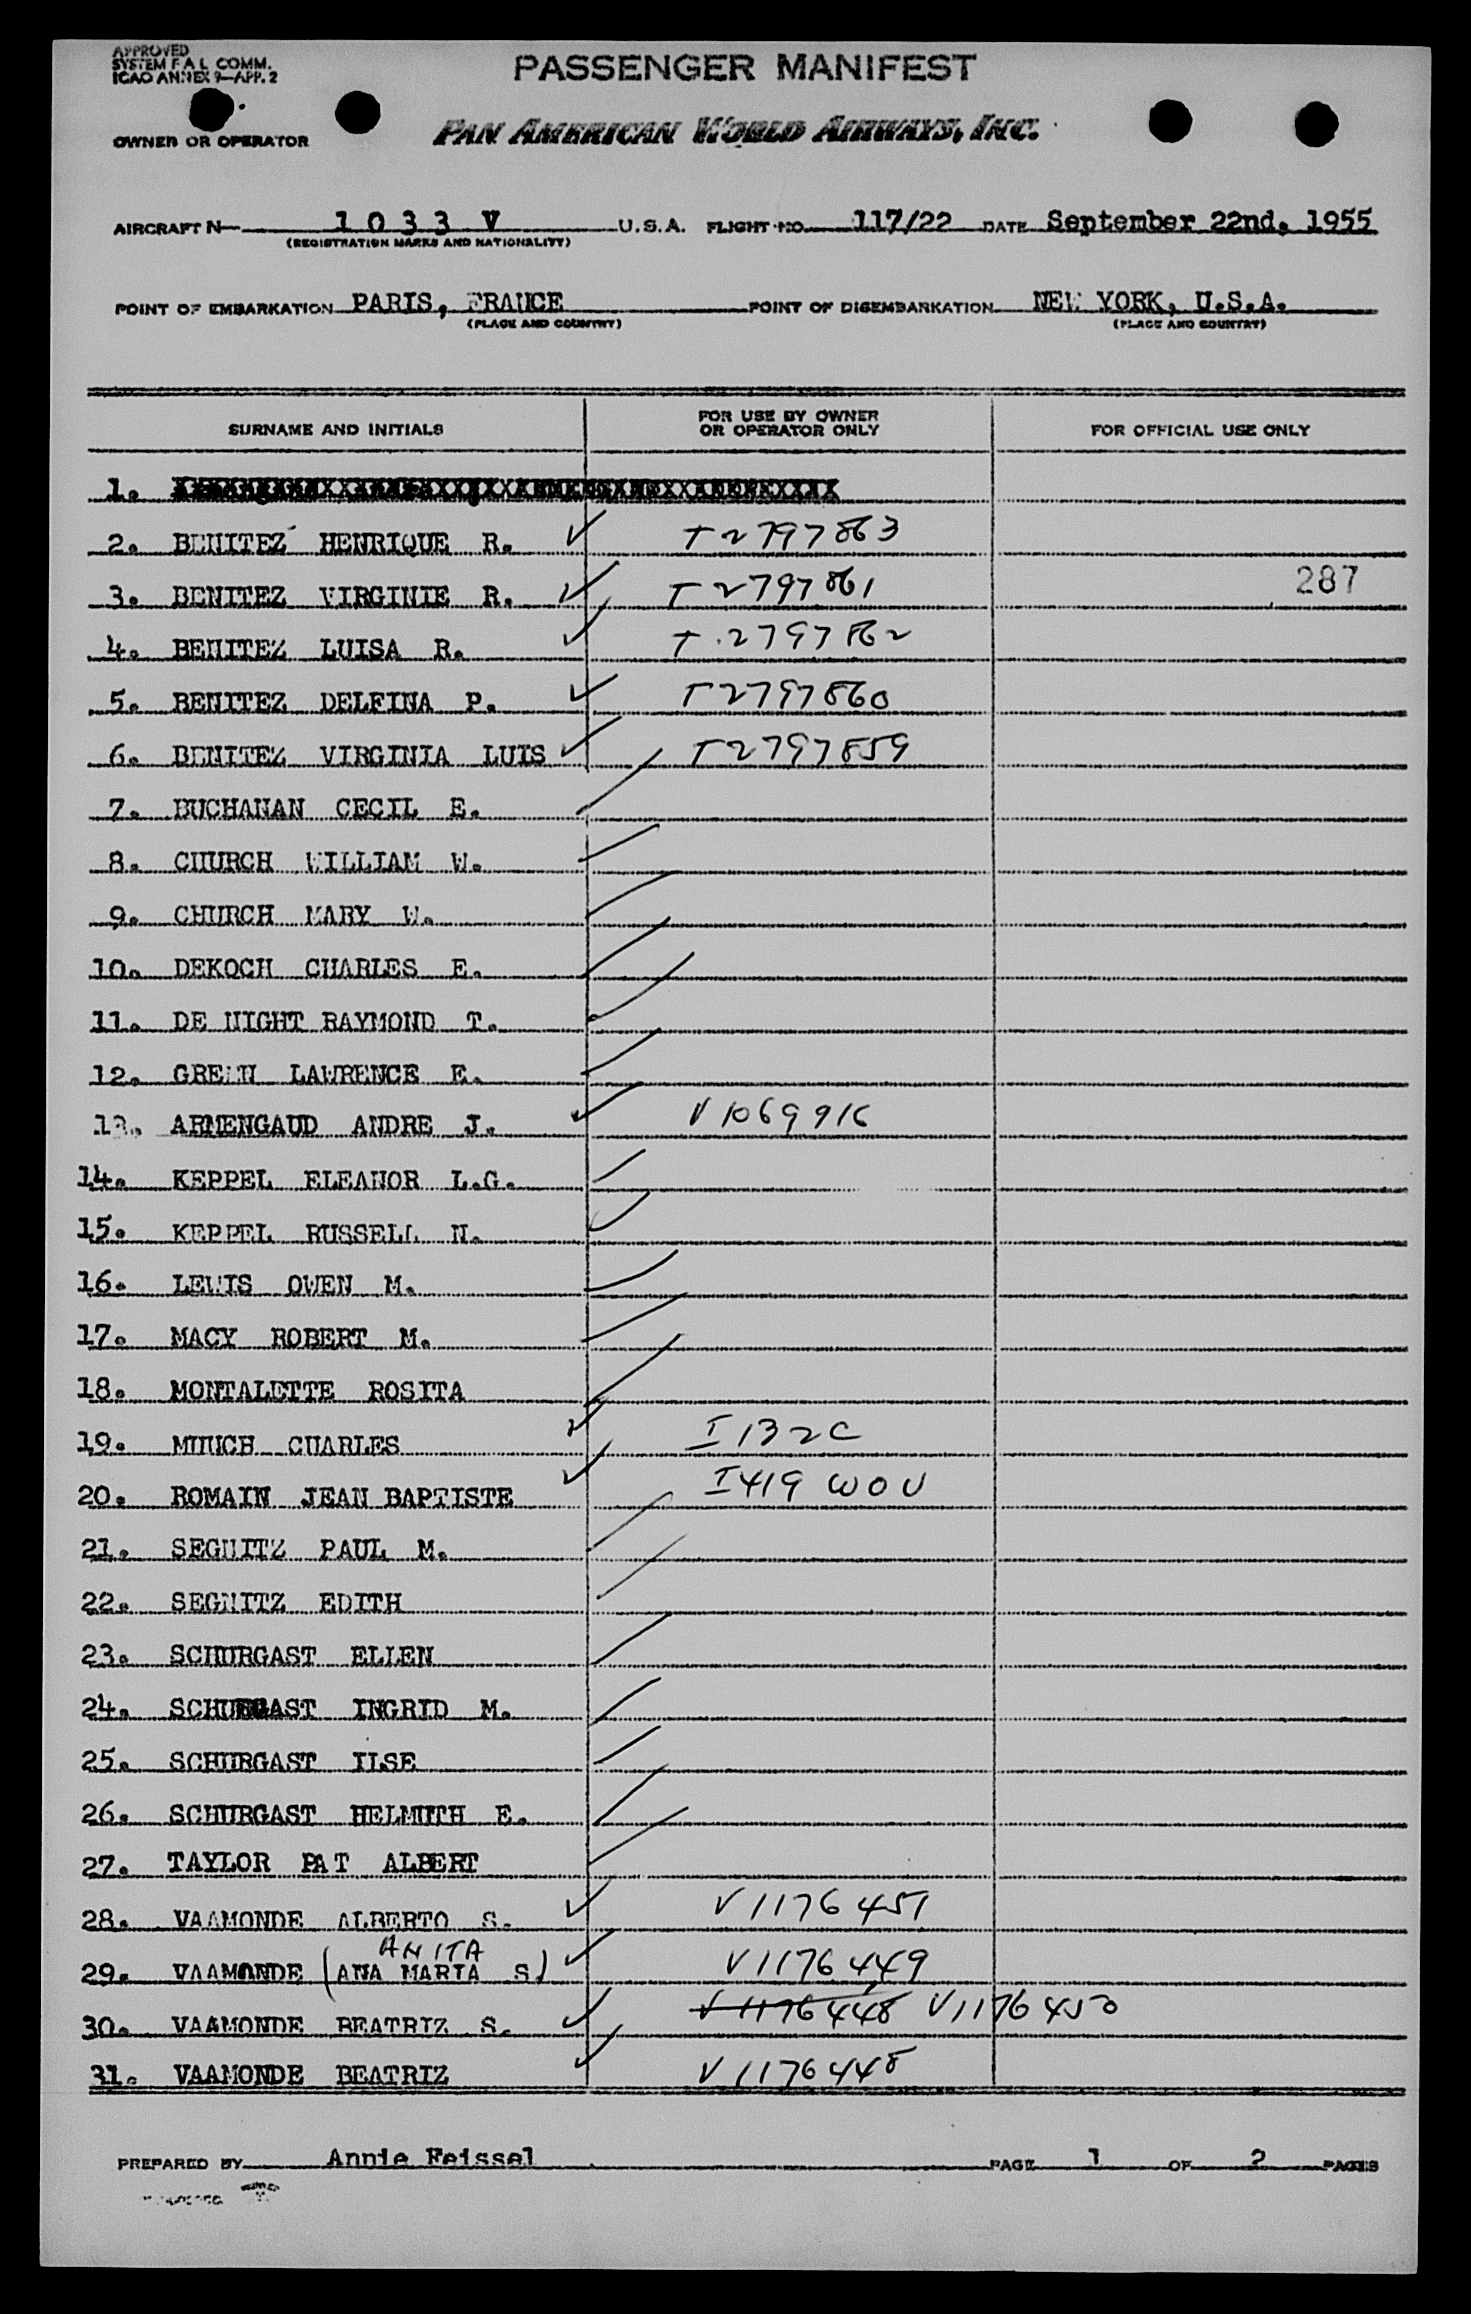 APPROVED
SYSTEM F A L COMM.
ICAO ANNEX 9—APP. 2
PASSENGER MANIFEST
OWNER OR OPERATOR PAN AMERICAN WORLD AIRWAYS, INC.
AIRCRAFT N— 1 0 3 3 V U.S.A. FLIGHT NO. 117/22 DATE September 22nd, 1955
(REGISTRATION MARKS AND NATIONALITY)
POINT OF EMBARKATION PARIS, FRANCE POINT OF DISEMBARKATION NEW YORK, U.S.A.
(PLACE AND COUNTRY) (PLACE AND COUNTRY)
SURNAME AND INITIALS FOR USE BY OWNER OR OPERATOR ONLY FOR OFFICIAL USE ONLY
1.
2. BENITEZ HENRIQUE R. T2797863
3. BENITEZ VIRGINIE R. T2797861 287
4. BENITEZ LUISA R. T.2797862
5. BENITEZ DELFINA P. T2797860
6. BENITEZ VIRGINIA LUIS T2797859
7. BUCHANAN CECIL E.
8. CHURCH WILLIAM W.
9. CHURCH MARY W.
10. DEKOCH CHARLES E.
11. DE NIGHT RAYMOND T.
12. GREEN LAWRENCE E.
13. ARMENGAUD ANDRE J. V1069916
14. KEPPEL ELEANOR L.G.
15. KEPPEL RUSSELL N.
16. LEWIS OWEN M.
17. MACY ROBERT M.
18. MONTALETTE ROSITA
19. MUUCH CHARLES I132C
20. ROMAIN JEAN BAPTISTE I419 WOU
21. SEGNITZ PAUL M.
22. SEGNITZ EDITH
23. SCHURGAST ELLEN
24. SCHURGAST INGRID M.
25. SCHURGAST ILSE
26. SCHURGAST HELMUTH E.
27. TAYLOR PAT ALBERT
28. VAAMONDE ALBERTO S. V1176451
ANITA
29. VAAMONDE (ANA MARIA S) V1176449
30. VAAMONDE BEATRIZ S. V1176448 V1176450
31. VAAMONDE BEATRIZ V1176448
PREPARED BY Annie Feissel PAGE 1 OF 2 PAGES